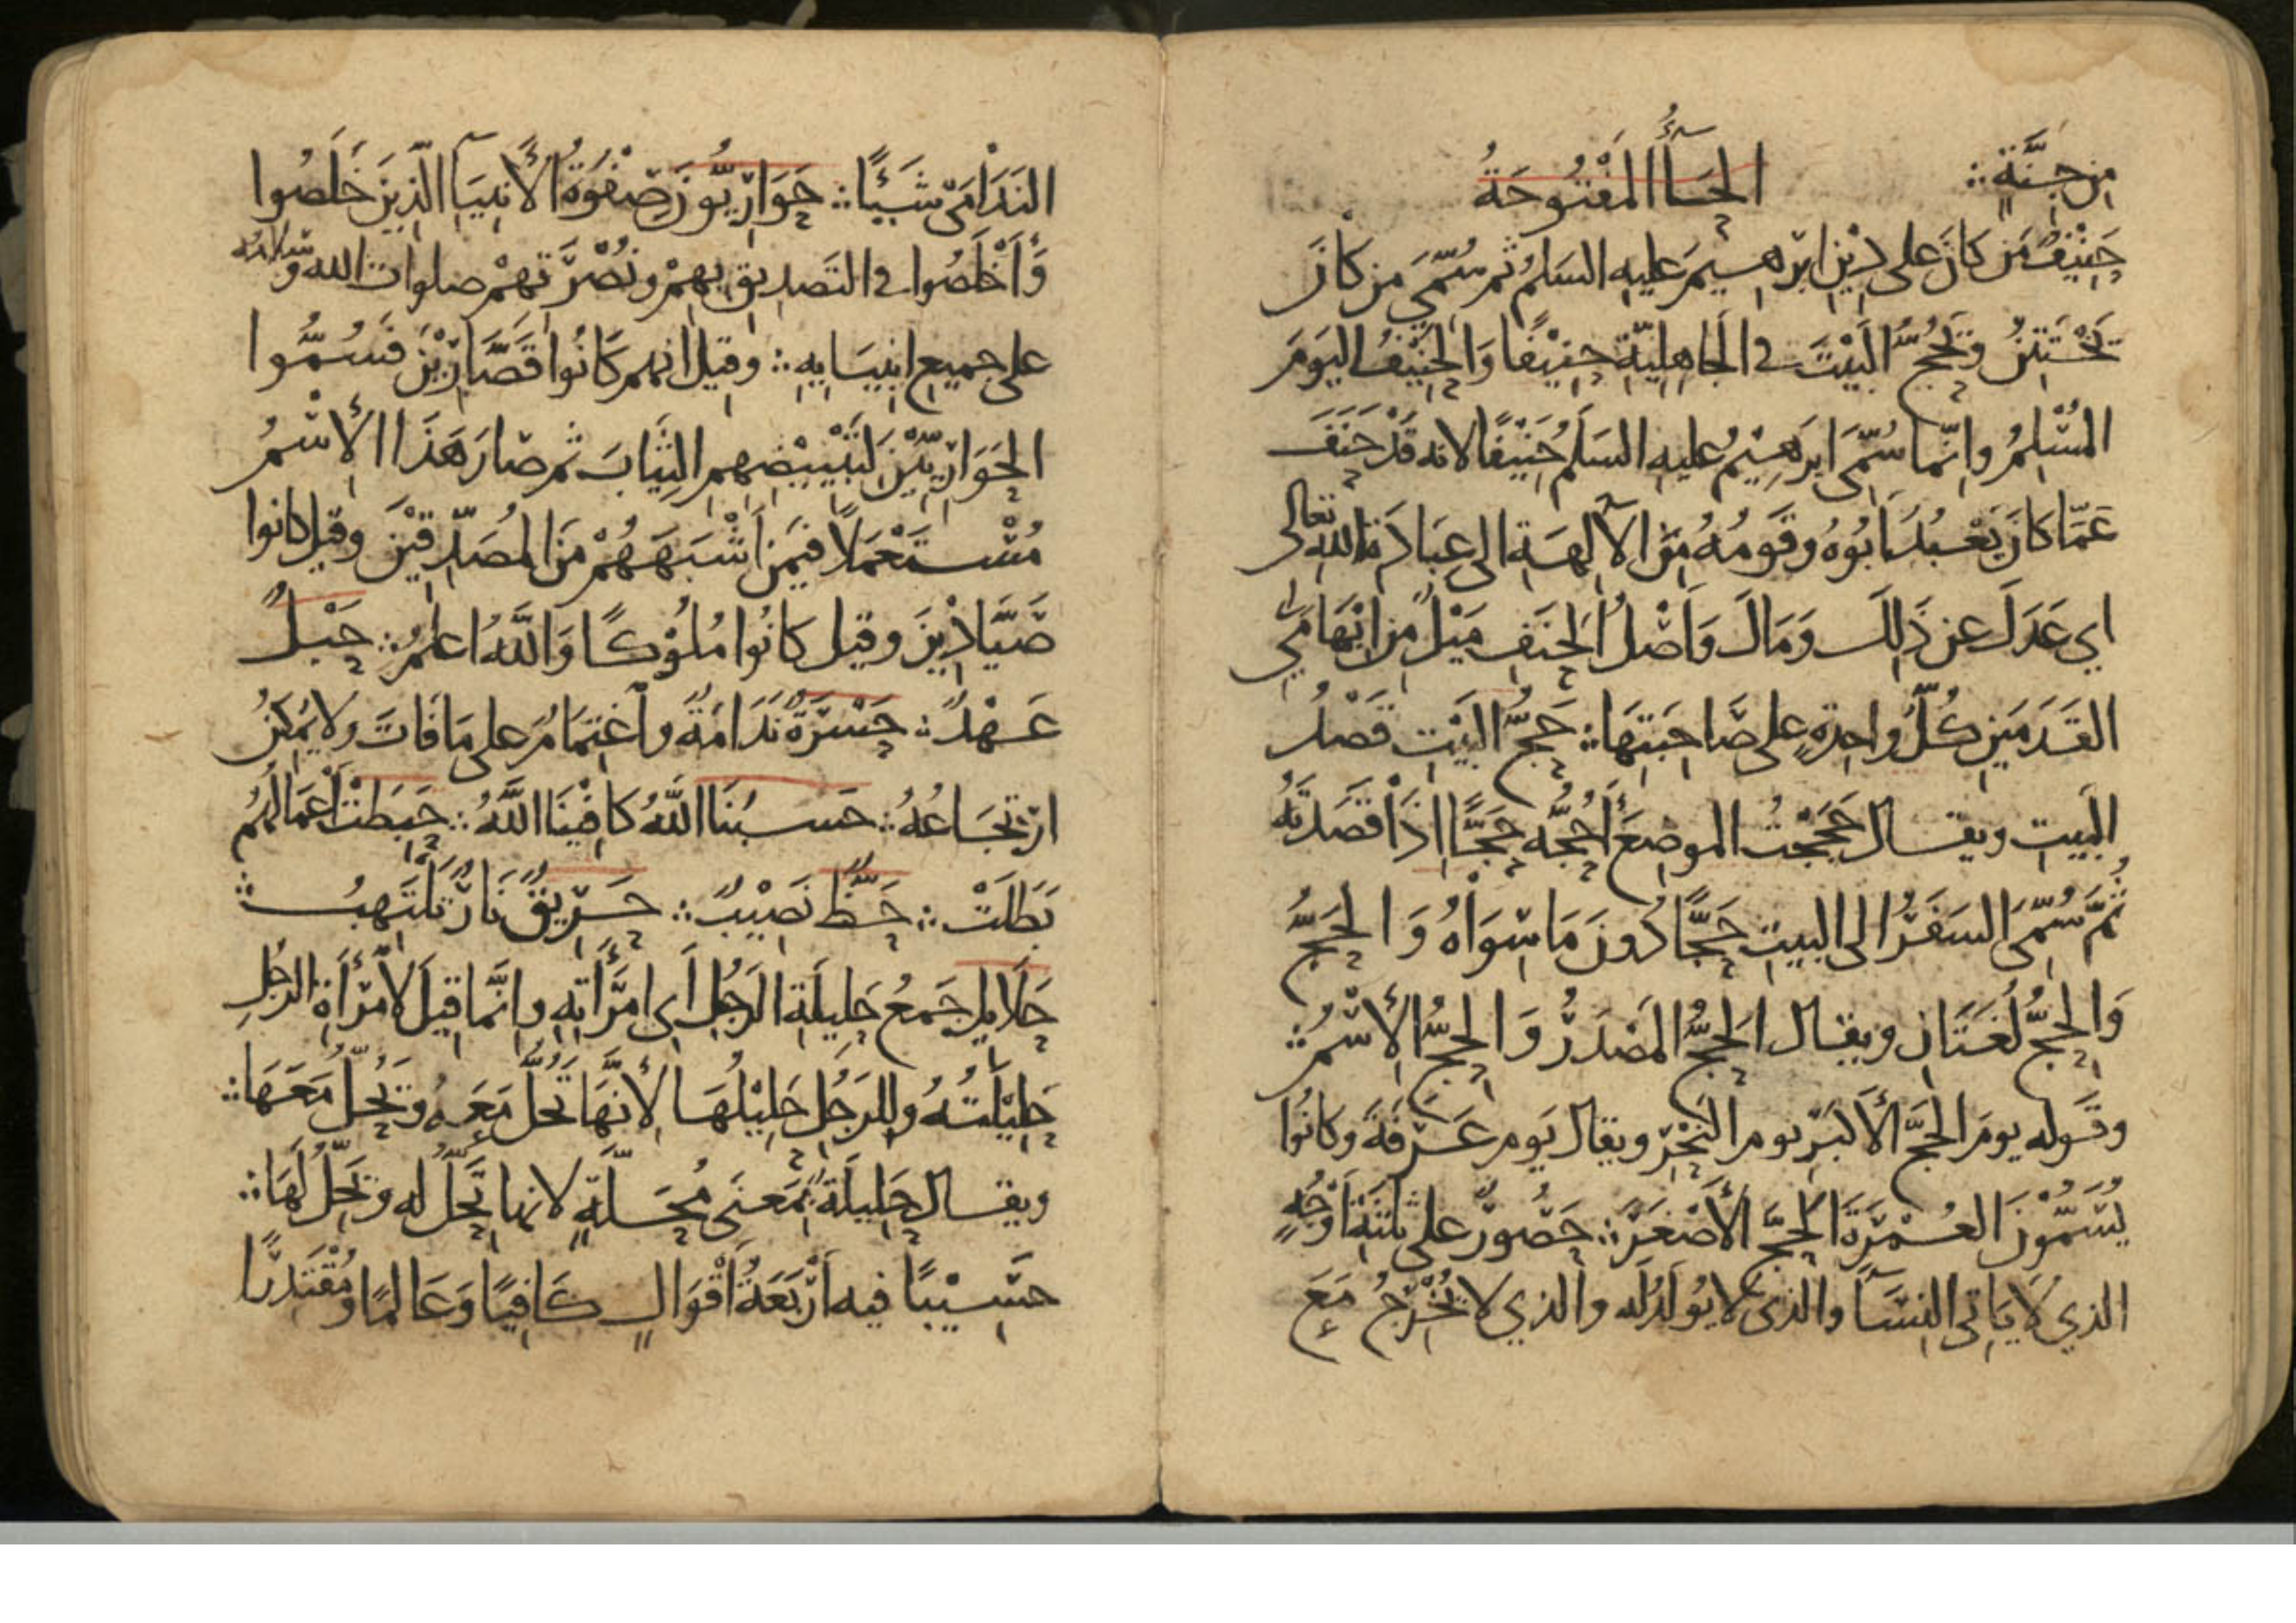 من جِنَّةٍ ∴ الحَاءُ المَفْتُوحَةُ
حَنِيْفٌ مَن كَانَ على دِيْنِ ابرٰهيمَ عليه السَلمُ ثم سُمِّيَ مَن كانَ
يَخْتَتِنُ وَيَحُجُّ البَيْتَ في الجَاهِلِيّةِ حَنِيْفًا وَالحَنِيْفُ اليَومَ
المُسْلِمُ وانّما سُمِّىَ ابرَهِيْمُ عليه السَلَم حَنِيْفًا لانه قَدْ حَنَفَ
عَمّا كانَ يَعْبُدُ اَبُوْهُ وقَومُهُ مِنَ الآلِهَةِ الى عِبَادَةِ اللهِ تعالى
اي عَدَلَ عن ذَلِكَ وَمَالَ وَاَصْلُ الحَنَفِ مَيْلٌ مِن اِبْهَامَي
القَدَمَينِ كُلُّ واحِدةٍ على صَاحِبَتِهَا ∴ حَجُّ البَيْتِ قَصْدُ
البَيتِ ويقال حَجَجْتُ الموضِعَ أَحُجُّه حَجًّا اِذَا قَصَدتَهُ
ثُمَّ سُمِّىَ السَفَرُ الى البيتِ حَجًّا دُونَ مَا سِوَاهُ وَالحَجُّ
وَالحِجُّ لُغَتَانِ ويقال الحَجُّ المَصْدَرُ وَالحِجُّ الاِسْمُ ∴
وقَوله يومَ الحَجِّ الأَكبَرِ يوم النَحْرِ ويقال يَوم عَرَفَةَ وكانُوا
يُسَمُّوْنَ العُمْرَةَ الحَجَّ الأَصْغَرَ ∴ حَصُورٌ على ثلثَةِ اَوْجُهٍ
الذي لَا يَاتى النِسَآ والذى لا يُولَدُ لَه والذي لا يُخْرِجُ مَعَ
النَدَامَى شَيْئًا ∴ حَوَارِيُّونَ صِفْوَةُ الأَنبِيَآ الّذِينَ خَلَصُوا
وَأَخْلَصُوا في التَصدِيقِ بِهِمْ ونُصْرَتهِمْ صلوات الله وسلامه
على جميعِ انبِيَايِهِ ∴ وقيل انهم كَانُوا قَصَّارِيْنَ فَسُمُّوا
الحَوَارِيِّيْنَ لِتَبْيِيْضِهِمِ الثِيَابَ ثم صَارَ هَذَا الاِسْمُ
مُسْتَعْمَلاً فيمَن اَشْبَهَهُمْ مِنَ المُصَدِّقِيْنَ وقيل كانوا
صَيَّادِيْنَ وقيل كانُوا مُلُوْكًا وَاللَّهُ اعلمُ ∴ حَبْلٌ
عَهْدٌ ∴ حَسْرَةٌ نَدَامَةٌ واَغتِمَامٌ على مَا فَاتَ ولا يُمْكِنُ
ارْتِجَاعُهُ ∴ حَسبُنَا اللَّهُ كَافِيْنَا اللَّهُ ∴ حَبِطَتْ أَعمَالُهُم
بَطَلَتْ ∴ حَظٌّ نَصِيْبٌ ∴ حَرِيْقٌ نَارٌ تَلْتَهِبُ ∴
حَلَايِلُ جَمعُ حَلِيلَةِ الرَجُلِ أَى امرَأَتِهِ وانَّمَا قِيلَ لاِمْرَأَةِ الرجُلِ
حَلِيْلَتُهُ وللرَجُلِ حَلِيْلُهَا لأَنَّهَا تَحُلُّ مَعَهُ ويَحُلُّ مَعَهَا ∴
ويقال حَلِيلَةٌ بِمَعنَى مُحَلَّةٍ لانها تَحِلُّ له ويَحِلُّ لَهَا ∴
حَسِيْبًا فيه اَرْبَعَةُ اَقْوَالٍ كَافِيًا وَعَالمًا ومُقْتَدِرًا